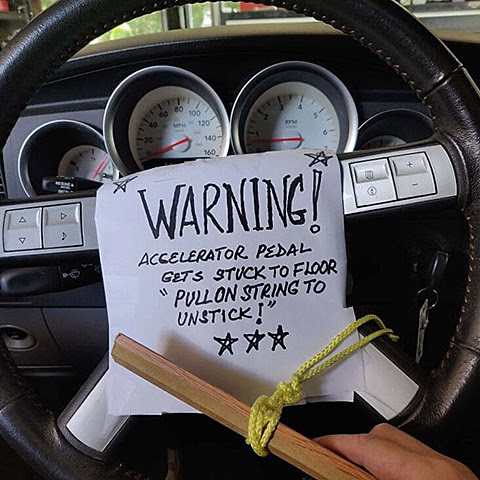 20
40
60
80
100
120
140
160
MPH
1
2
3
4
5
6
7
RPM
WARNING!
ACCELERATOR PEDAL
GETS STUCK TO FLOOR
"PULL ON STRING TO
UNSTICK!"
+
−